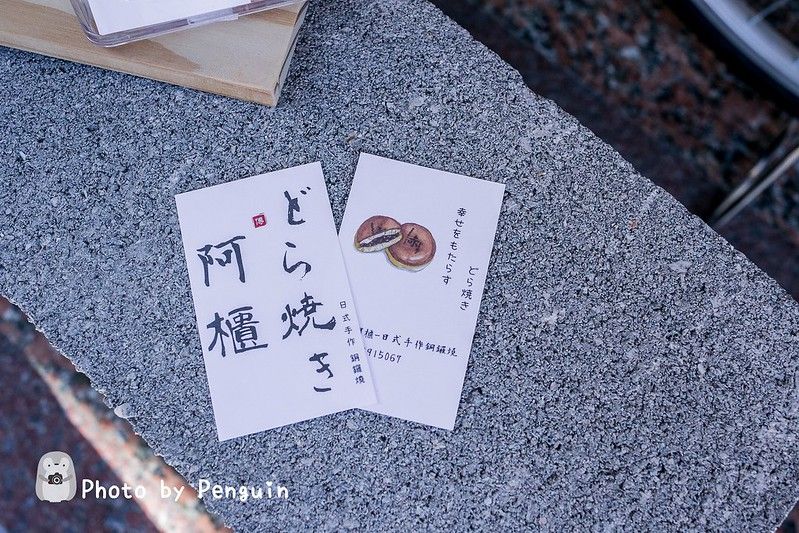 どら焼き
阿櫃
日式手作 銅鑼燒
幸せをもたらす
どら焼き
櫃-日式手作銅鑼燒
915067
Photo by Penguin